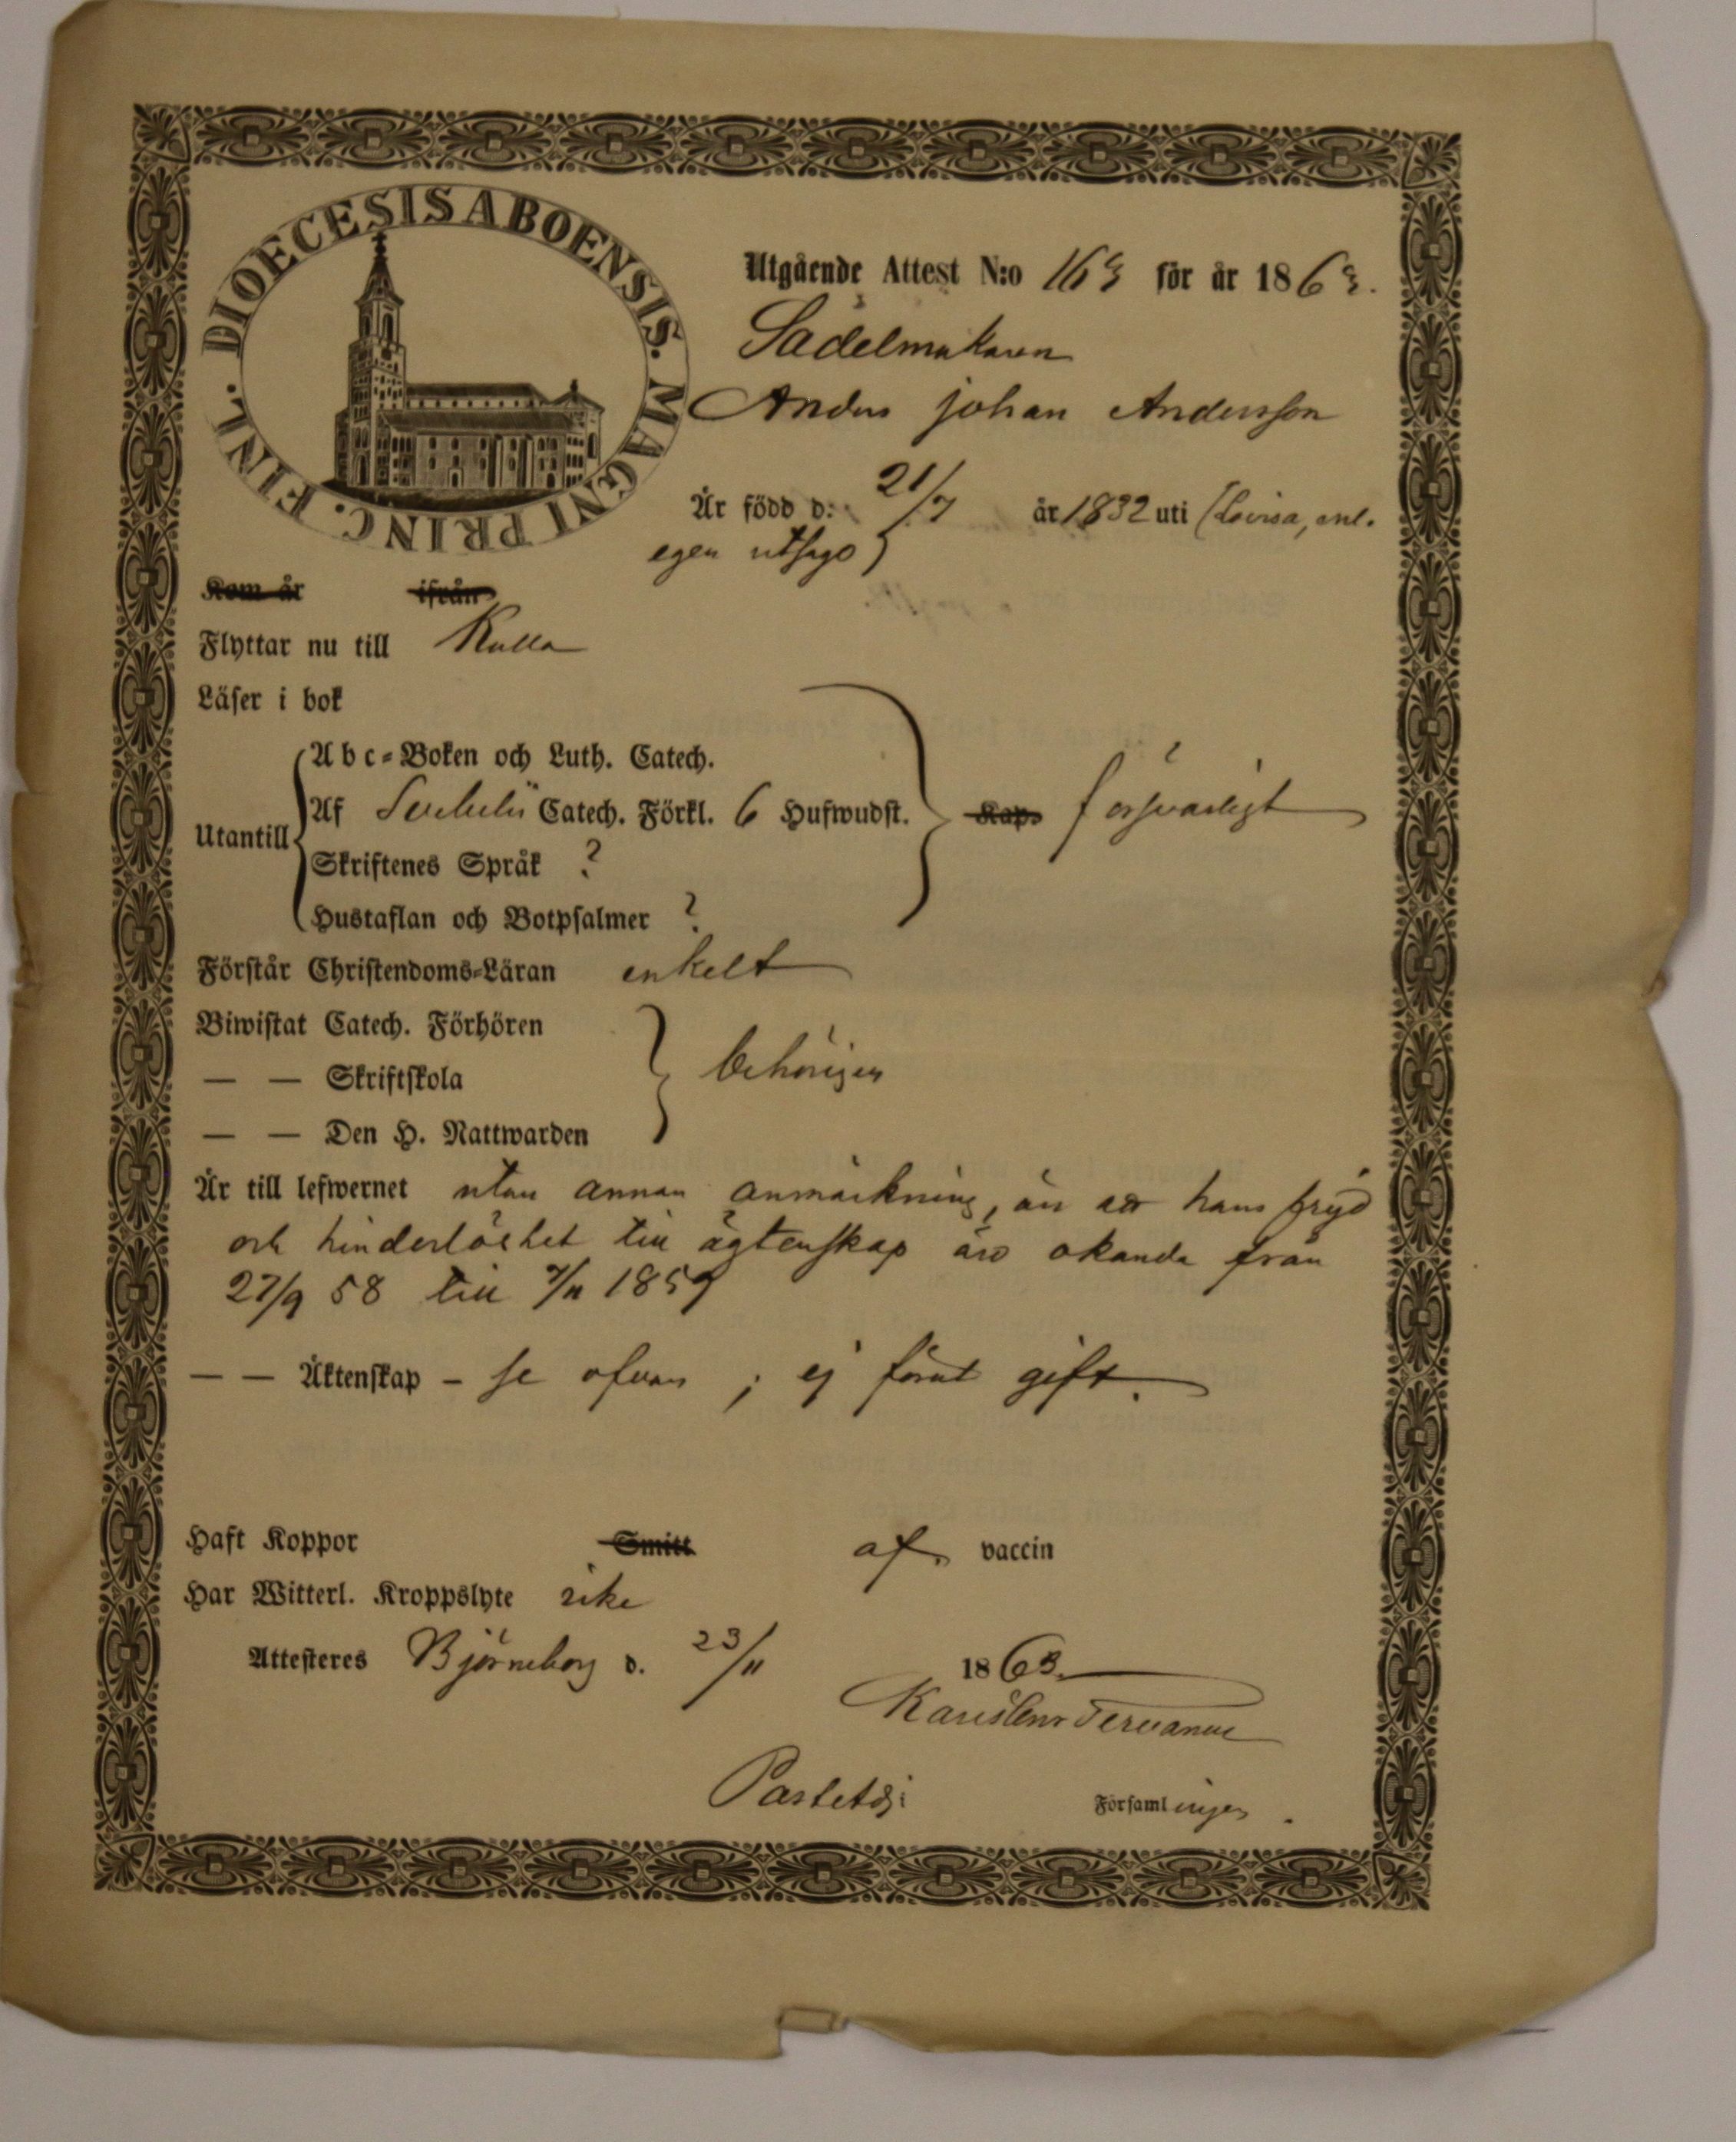 DIOECESIS ABOENSIS. MAGNI PRINC. FINL.
Utgående Attest N:o 163 för år 1863.
Sadelmakaren
Anders Johan Andersson
Är född d: 21/7 år 1832 uti (Lovisa, enl.
egen utsago)
Kom år ifrån
Flyttar nu till Kulla
Läser i bok
Abc-Boken och Luth. Catech.
Utantill
Af Svebelii Catech. Förkl. 6 Hufwudst. Kap. försvarligt
Skriftenes Språk ?
Hustaflan och Botpsalmer ?
Förstår Christendoms-Läran enkelt
Biwistat Catech. Förhören
— — Skriftskola behörigen
— — Den H. Nattwarden
Är till lefwernet utan annan anmärkning, än att hans frejd
och hinderlöshet till ägtenskap äro okända från
27/9 58 till 7/11 1859
— — Äktenskap - se ofvan ; ej förut gift.
Haft Koppor Smitt af vaccin
Har Witterl. Kroppslyte icke
Attesteres Björneborg d. 23/11 1863.
Församlingen.